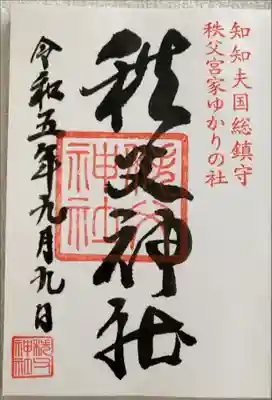 知知夫国総鎮守
秩父宮家ゆかりの社
秩父神社
令和五年九月九日
秩父神社
秩父神社